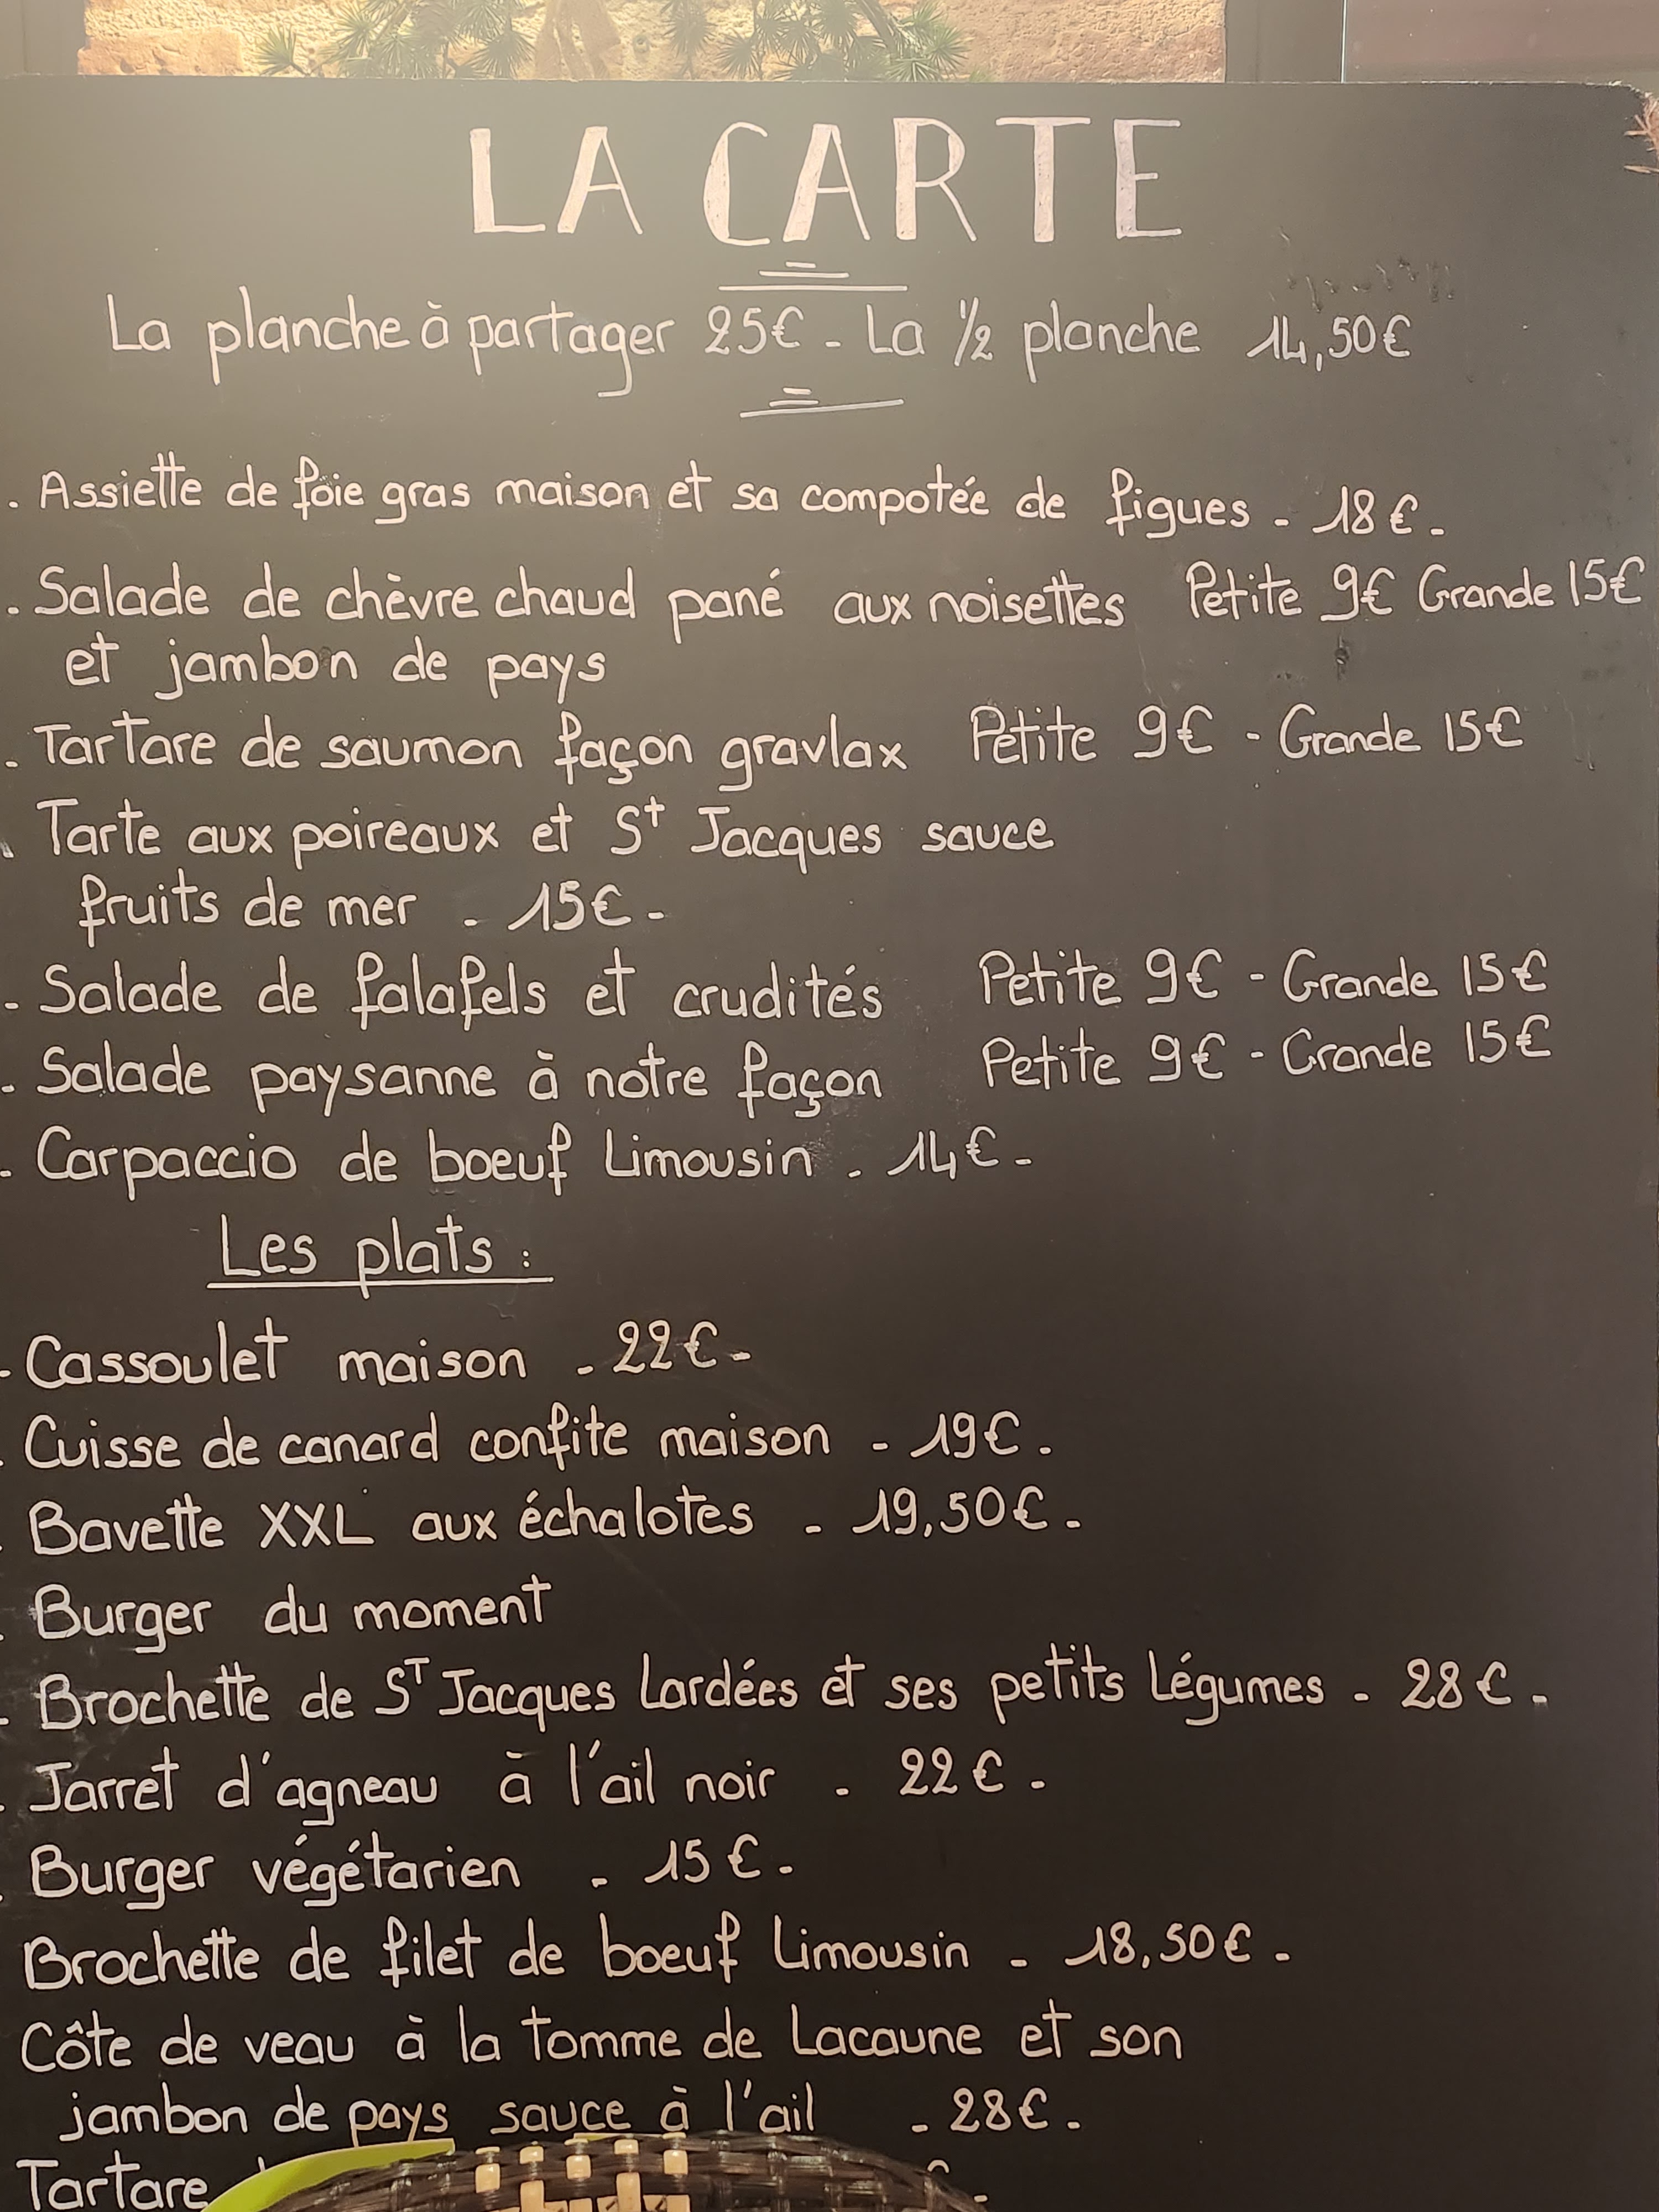 LA CARTE
La planche à partager 25€ - La 1/2 planche 14,50€
. Assiette de foie gras maison et sa compotée de figues - 18€ -
. Salade de chèvre chaud pané aux noisettes Petite 9€ Grande 15€
et jambon de pays
. Tartare de saumon façon gravlax Petite 9€ - Grande 15€
. Tarte aux poireaux et St Jacques sauce
fruits de mer - 15€ -
- Salade de falafels et crudités Petite 9€ - Grande 15€
- Salade paysanne à notre façon Petite 9€ - Grande 15€
- Carpaccio de boeuf Limousin - 14€ -
Les plats :
- Cassoulet maison - 22€ -
. Cuisse de canard confite maison - 19€ -
. Bavette XXL aux échalotes - 19,50€ -
. Burger du moment
- Brochette de ST Jacques Lardées et ses petits Légumes - 28€ -
- Jarret d'agneau à l'ail noir - 22€ -
. Burger végétarien - 15€ -
Brochette de filet de boeuf Limousin - 18,50€ -
Côte de veau à la tomme de Lacaune et son
jambon de pays sauce à l'ail - 28€ -
Tartare